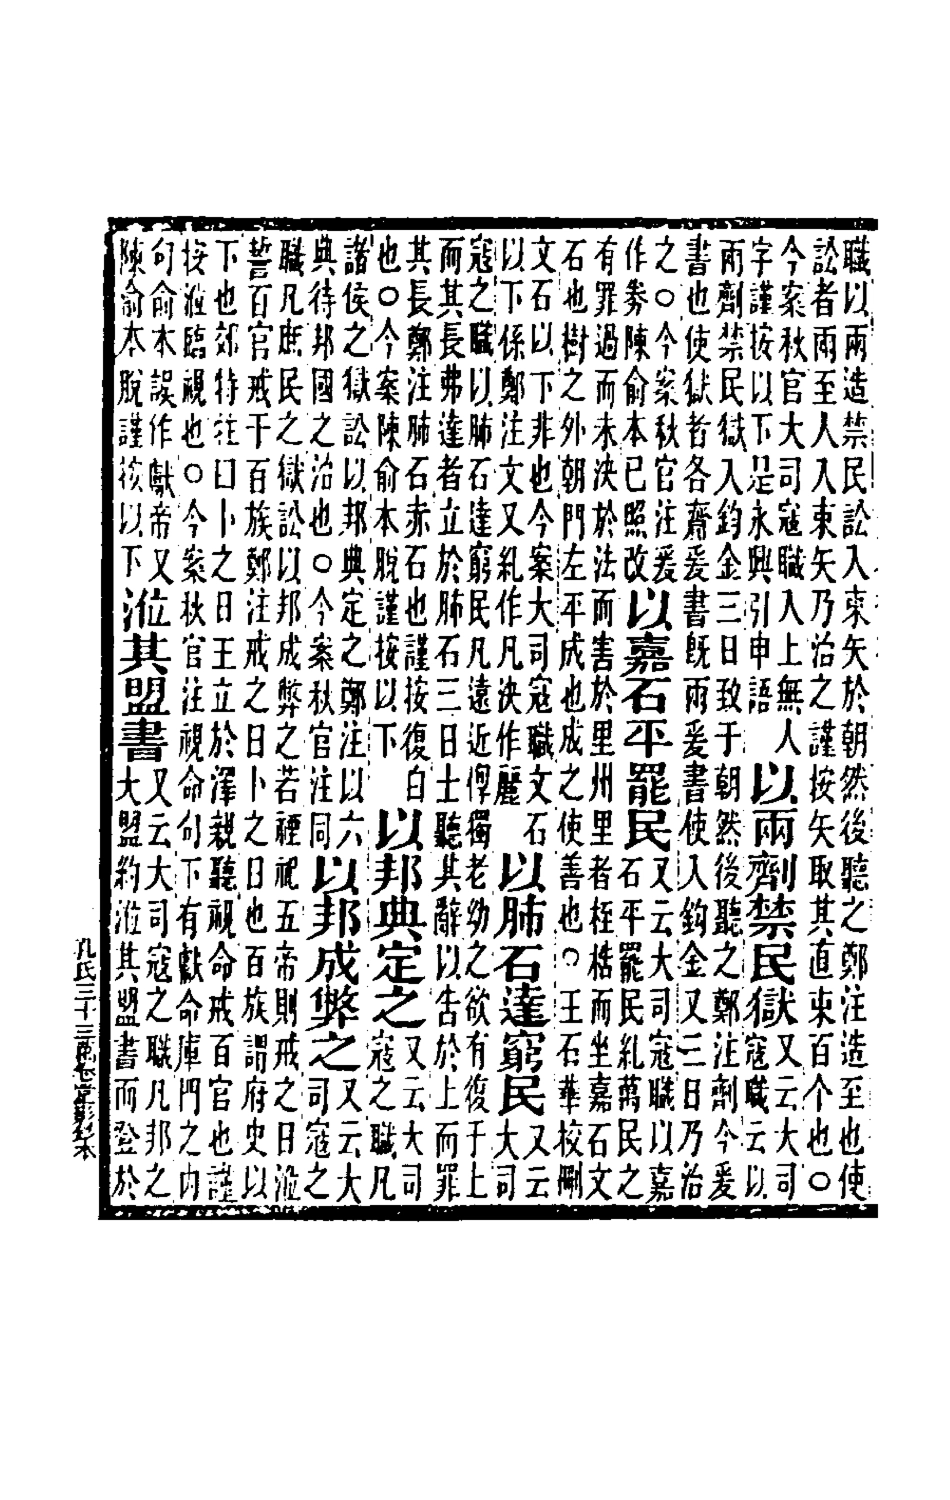 職以兩造禁民訟入束矢於朝然後聽之鄭注造至也使
訟者兩至人入束矢乃治之謹按矢取其直束百个也○
今案秋官大司寇職入上無人
字謹按以下是永興引申語
以兩劑禁民獄
又云大司
寇職云以
兩劑禁民獄入鈞金三日致于朝然後聽之鄭注劑今爰
書也使獄者各齎爰書既兩爰書使入鈞金又三日乃治
之○今案秋官注爰
作券陳俞本已照改
以嘉石平罷民
又云大司寇職以嘉
石平罷民糺萬民之
有罪過而未決於法而害於里州里者桎梏而坐嘉石文
石也樹之外朝門左平成也成之使善也○王石華校刪
文石以下非也今案大司寇職文石
以下係鄭注文又糺作凡決作麗
以肺石達窮民
又云
大司
寇之職以肺石達窮民凡遠近惸獨老幼之欲有復于上
而其長弗達者立於肺石三日士聽其辭以告於上而罪
其長鄭注肺石赤石也謹按復白
也○今案陳俞本脫謹按以下
以邦典定之
又云大司
寇之職凡
諸侯之獄訟以邦典定之鄭注以六
典待邦國之治也○今案秋官注同
以邦成弊之
又云大
司寇之
職凡庶民之獄訟以邦成弊之若禋祀五帝則戒之日涖
誓百官戒于百族鄭注戒之日卜之日也百族謂府史以
下也郊特牲曰卜之日王立於澤親聽視命戒百官也謹
按涖臨視也○今案秋官注視命句下有獻命庫門之內
句俞本誤作獻帝又
陳俞本脫謹按以下
涖其盟書
又云大司寇之職凡邦之
大盟約涖其盟書而登於
孔氏三十三萬卷堂影鈔本